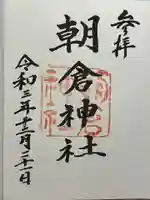 参拝
朝倉神社
令和三年十二月三十一日